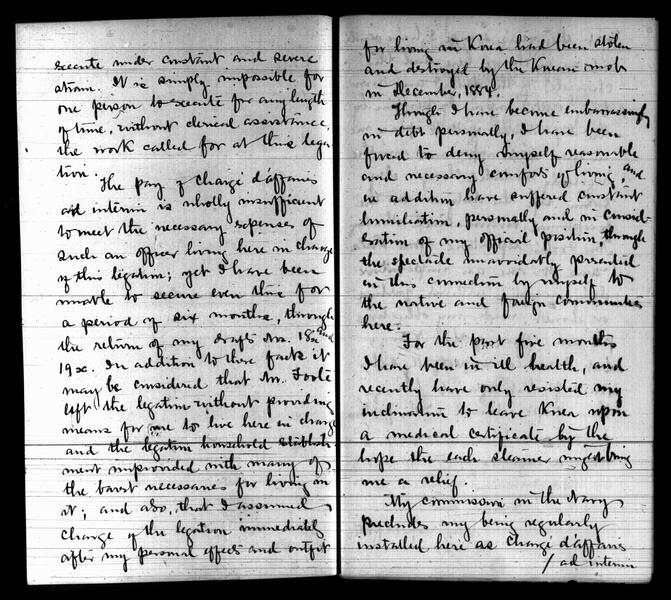 execute under constant and severe
strain. It is simply impossible for
one person to execute for any length
of time, without clerical assistance,
the work called for at this lega-
tion.
The pay of chargé d'affaires
ad interim is wholly insufficient
to meet the necessary expenses of
such an officer living here in charge
of this legation; yet I have been
unable to secure even this for
a period of six months, through
the return of my drafts No. 18 and
19 x. In addition to these facts it
may be considered that Mr. Foote
left the legation without providing
means for me to live here in charge
and the legation household establish
ment unprovided with many of
the barest necessaries for living in
it; and also, that I assumed
charge of the legation immediately
after my personal effects and outfit
for living in Korea had been stolen
and destroyed by the Korean mob
in December, 1884.
Though I have become embarrassingly
in debt personally, I have been
forced to deny myself reasonable
and necessary comforts of living, and
in addition have suffered constant
humiliation, personally and in consid-
eration of my official position, through
the spectacle unavoidably presented
in this connection by myself to
the native and foreign communities
here.
For the past five months
I have been in ill health, and
recently have only resisted my
inclination to leave Korea upon
a medical certificate by the
hope the each steamer might bring
me a relief.
My commission in the Navy
precludes my being regularly
installed here as chargé d'affaires
/ ad interim